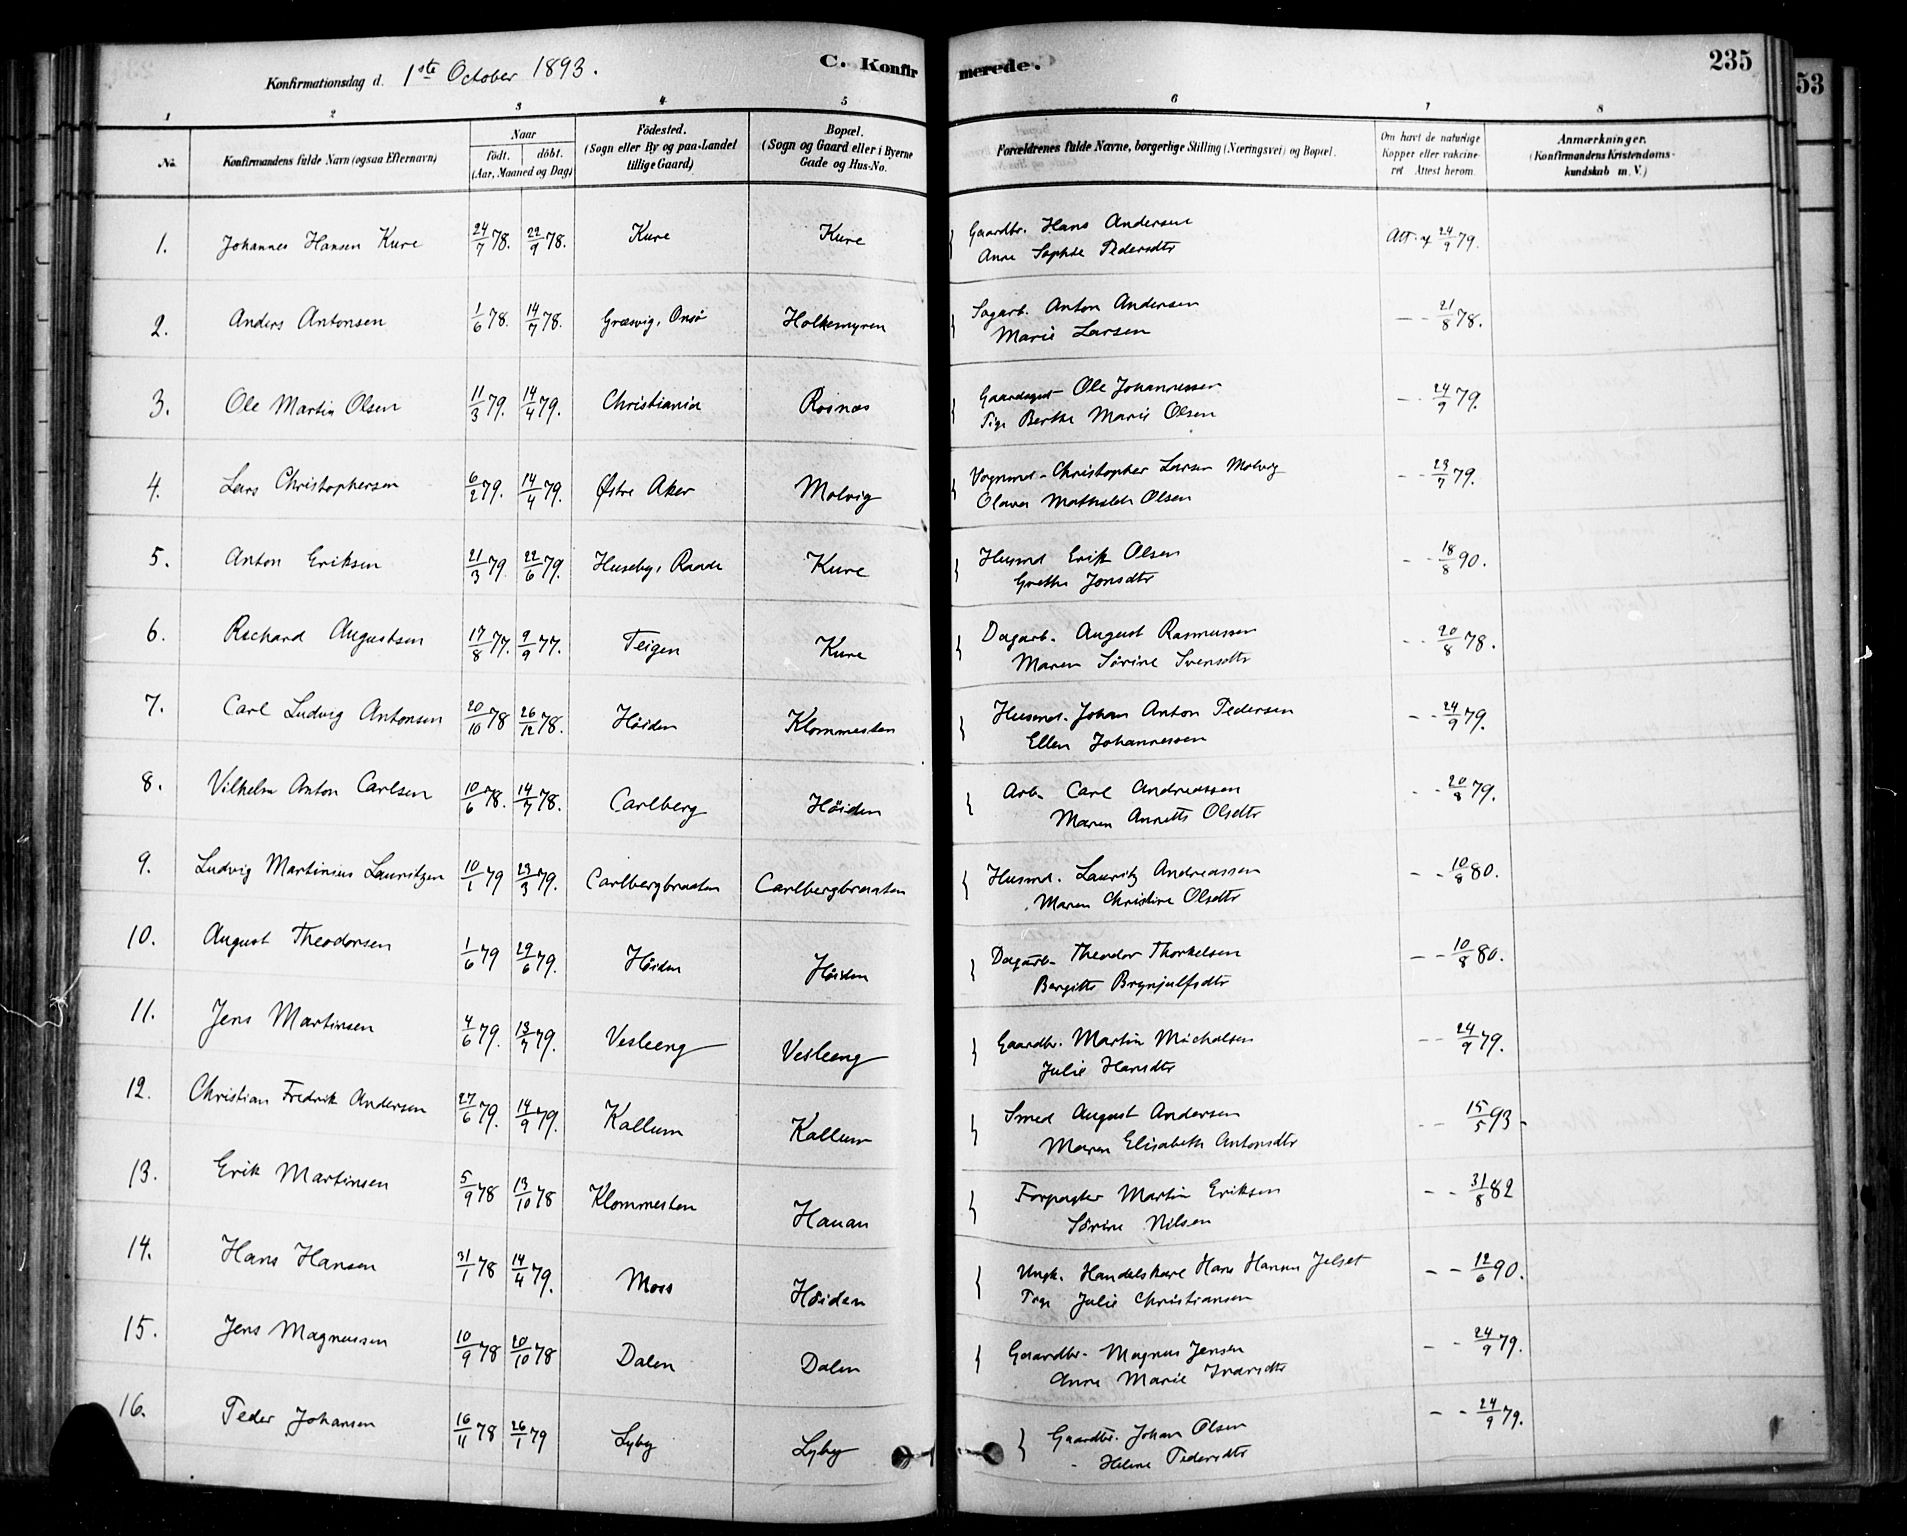 Konfirmationsdag d. 1ste October 1893. C. Konfirmerede. 235
53
1 2 3 4 5 6 7 8
No. Konfirmandens fulde Navn (ogsaa Efternavn) Naar födt. döbt. (Aar, Maaned og Dag) Födested. (Sogn eller By og paa Landet tillige Gaard) Bopæl. (Sogn og Gaard eller i Byerne Gade og Hus-No. Forældrenes fulde Navne, borgerlige Stilling (Næringsvei) og Bopæl. Om havt de naturlige Kopper eller vakcineret Attest herom. Anmærkninger. (Konfirmandens Kristendomskundskab m. V.)
1. Johannes Hansen Kure 24/7 78. 22/9 78. Kure Kure Gaardbr. Hans Andersen Att. af 24/9 79.
Anne Sophie Pedersdtr
2. Anders Antonsen 1/6 78. 14/7 78. Græsvig, Onsö Holkemyren Sagarb. Anton Andersen - - 21/8 78.
Marie Larsen
3. Ole Martin Olsen 11/3 79. 14/4 79. Christiania Rosnæs Ole Johannessen - - 24/9 79.
Pige Berthe Marie Olsen
4. Lars Christophersen 6/2 79. 14/4 79. Østre Aker Molvig Vognmd. Christopher Larsen Molvig - - 23/7 79.
Olava Mathilde Olsen
5. Anton Eriksen 21/3 79. 22/6 79. Huseby, Raade Kure Husmd Erik Olsen - - 18/8 90.
Grethe Jonsdtr
6. Richard Augustsen 17/8 77. 9/9 77. Teigen Kure Dagarb. August Rasmussen - - 20/8 78.
Maren Sörine Svensdtr
7. Carl Ludvig Antonsen 20/10 78 26/12 78. Höiden Klommesten Husmd. Johan Anton Pedersen - - 24/9 79.
Ellen Johannessen
8. Vilhelm Anton Carlsen 10/6 78. 14/7 78. Carlberg Höiden Arb. Carl Andreassen - - 20/8 79.
Maren Annette Olsdtr
9. Ludvig Martinius Lauritzen 10/1 79 23/3 79. Carlbergbraaten Carlbergbraaten Husmd. Lauritz Andreassen - - 10/8 80.
Maren Christine Olsdtr
10. August Theodorsen 1/6 79 29/6 79. Höiden Höiden Dagarb. Theodor Thorkelsen - - 10/8 80.
Bergitte Brynjulfsdtr
11. Jens Martinsen 4/6 79. 13/7 79. Vesleeng Vesleeng Gaardbr. Martin Michelsen - - 24/9 79.
Julie Hansdtr
12. Christian Fredrik Andersen 27/6 79. 14/9 79. Kallum Kallum Smed August Andersen - - 15/5 93.
Maren Elisabeth Antonsdtr
13. Erik Martinsen 5/9 78 13/10 78 Klommesten Hauan Forpagter Martin Eriksen - - 31/8 82
Sörine Nilsen
14. Hans Hansen 31/1 78 14/4 79. Moss Höiden Ungk. Handelskarl Hans Hansen Jelset - - 12/6 90.
Pige Julie Christiansen
15. Jens Magnussen 10/9 78 20/10 78 Dalen Dalen Gaardbr. Magnus Jensen - - 24/9 79.
Anne Marie Ivarsdtr
16. Peder Johansen 16/11 78 26/1 79 Lyby Lyby Gaardbr. Johan Olsen - - 24/9 79.
Helene Pedersdtr